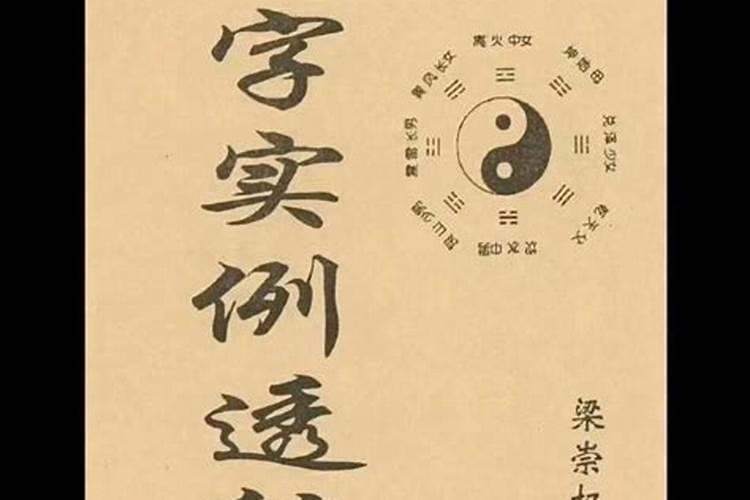 字实例透
离火中女
坤地母
兑泽少女
乾天父
坎水中男
艮山少男
震雷长男
巽风长女
梁崇